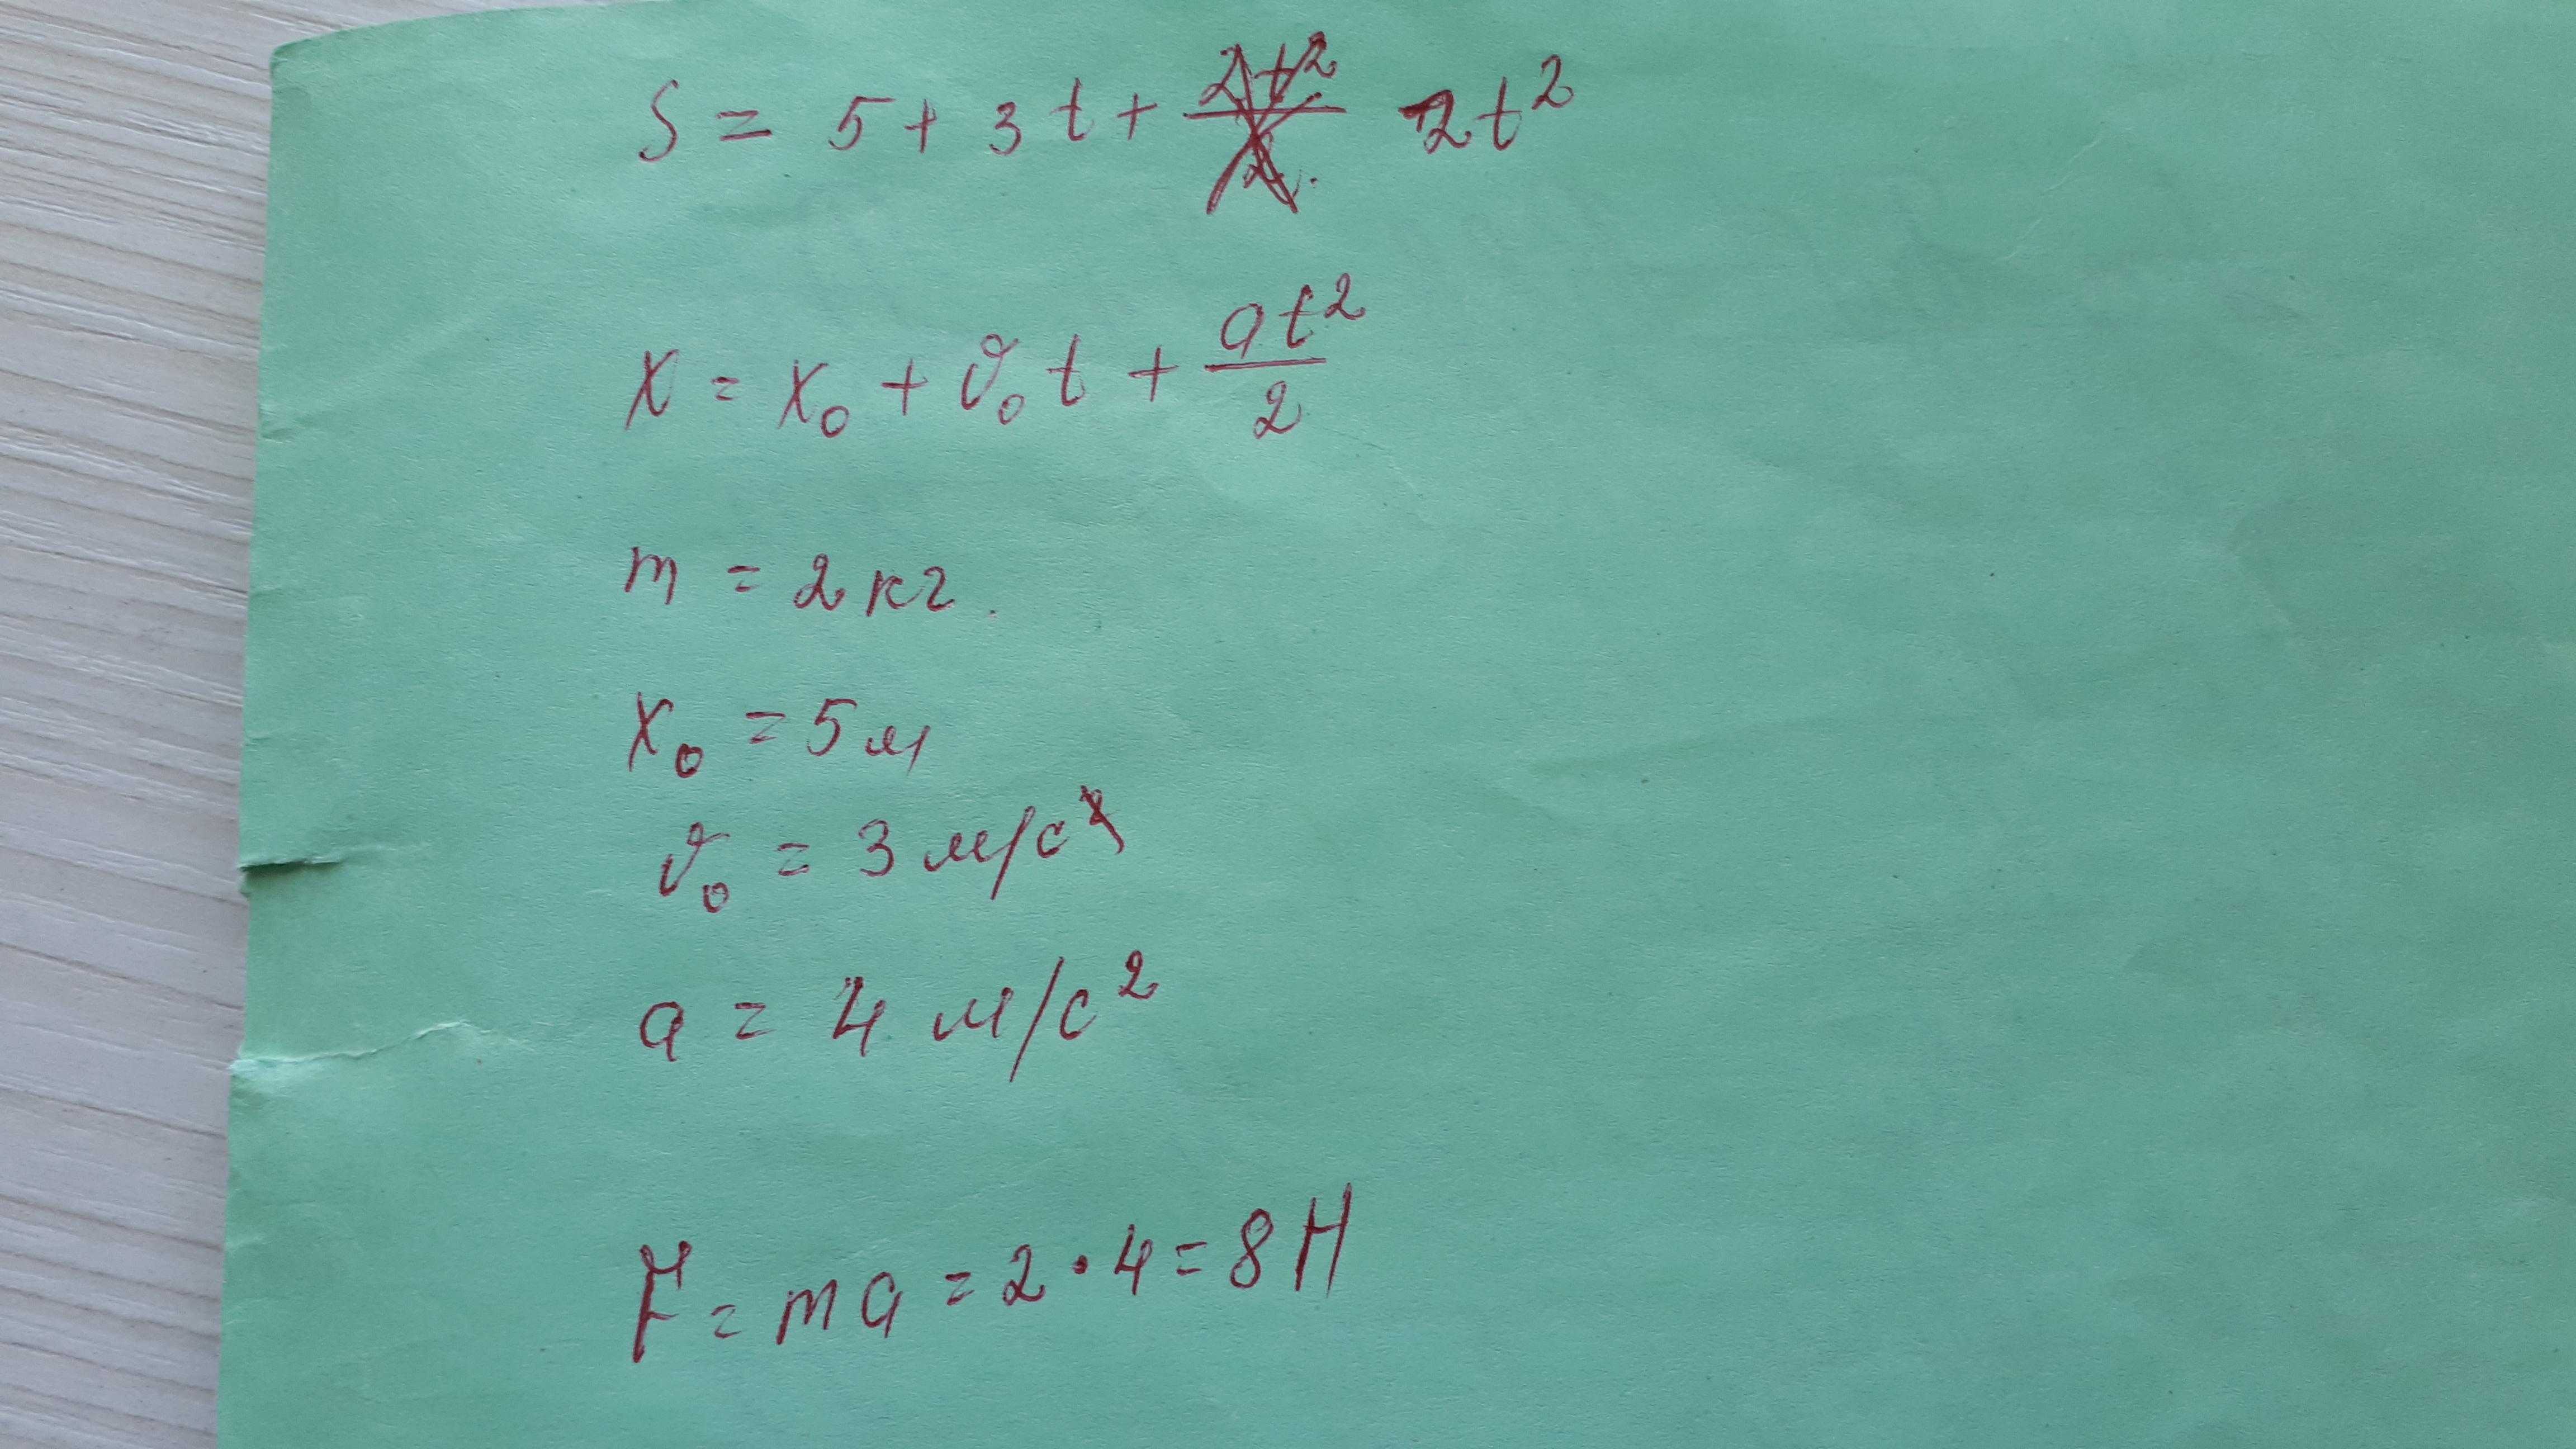 S = 5 + 3t + 2t²
x = x₀ + v₀t + at²/2
m = 2 кг.
x₀ = 5 м
v₀ = 3 м/с
a = 4 м/с²
F = ma = 2 · 4 = 8 Н